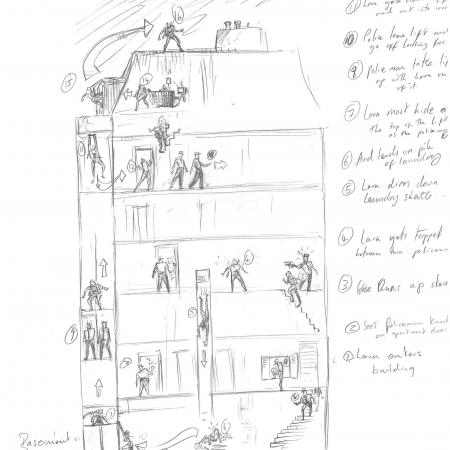 and out into
⑩ Police leave lift and
go off looking for
⑨ Policeman take lift
up with Lara on
top of it
⑦ Lara must hide
the top of the lift
as the policeman
⑥ And lands on pile
of laundry
⑤ Lara dives down
laundry shute
④ Lara gets trapped
between two policemen
③ Runs up stairs
② Sees policeman
on apartment door
① Lara enters
building
Basement